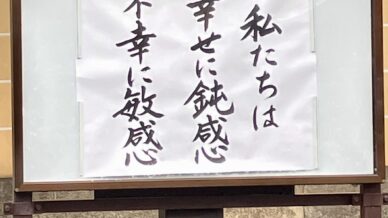 私たちは
幸せに鈍感
不幸に敏感